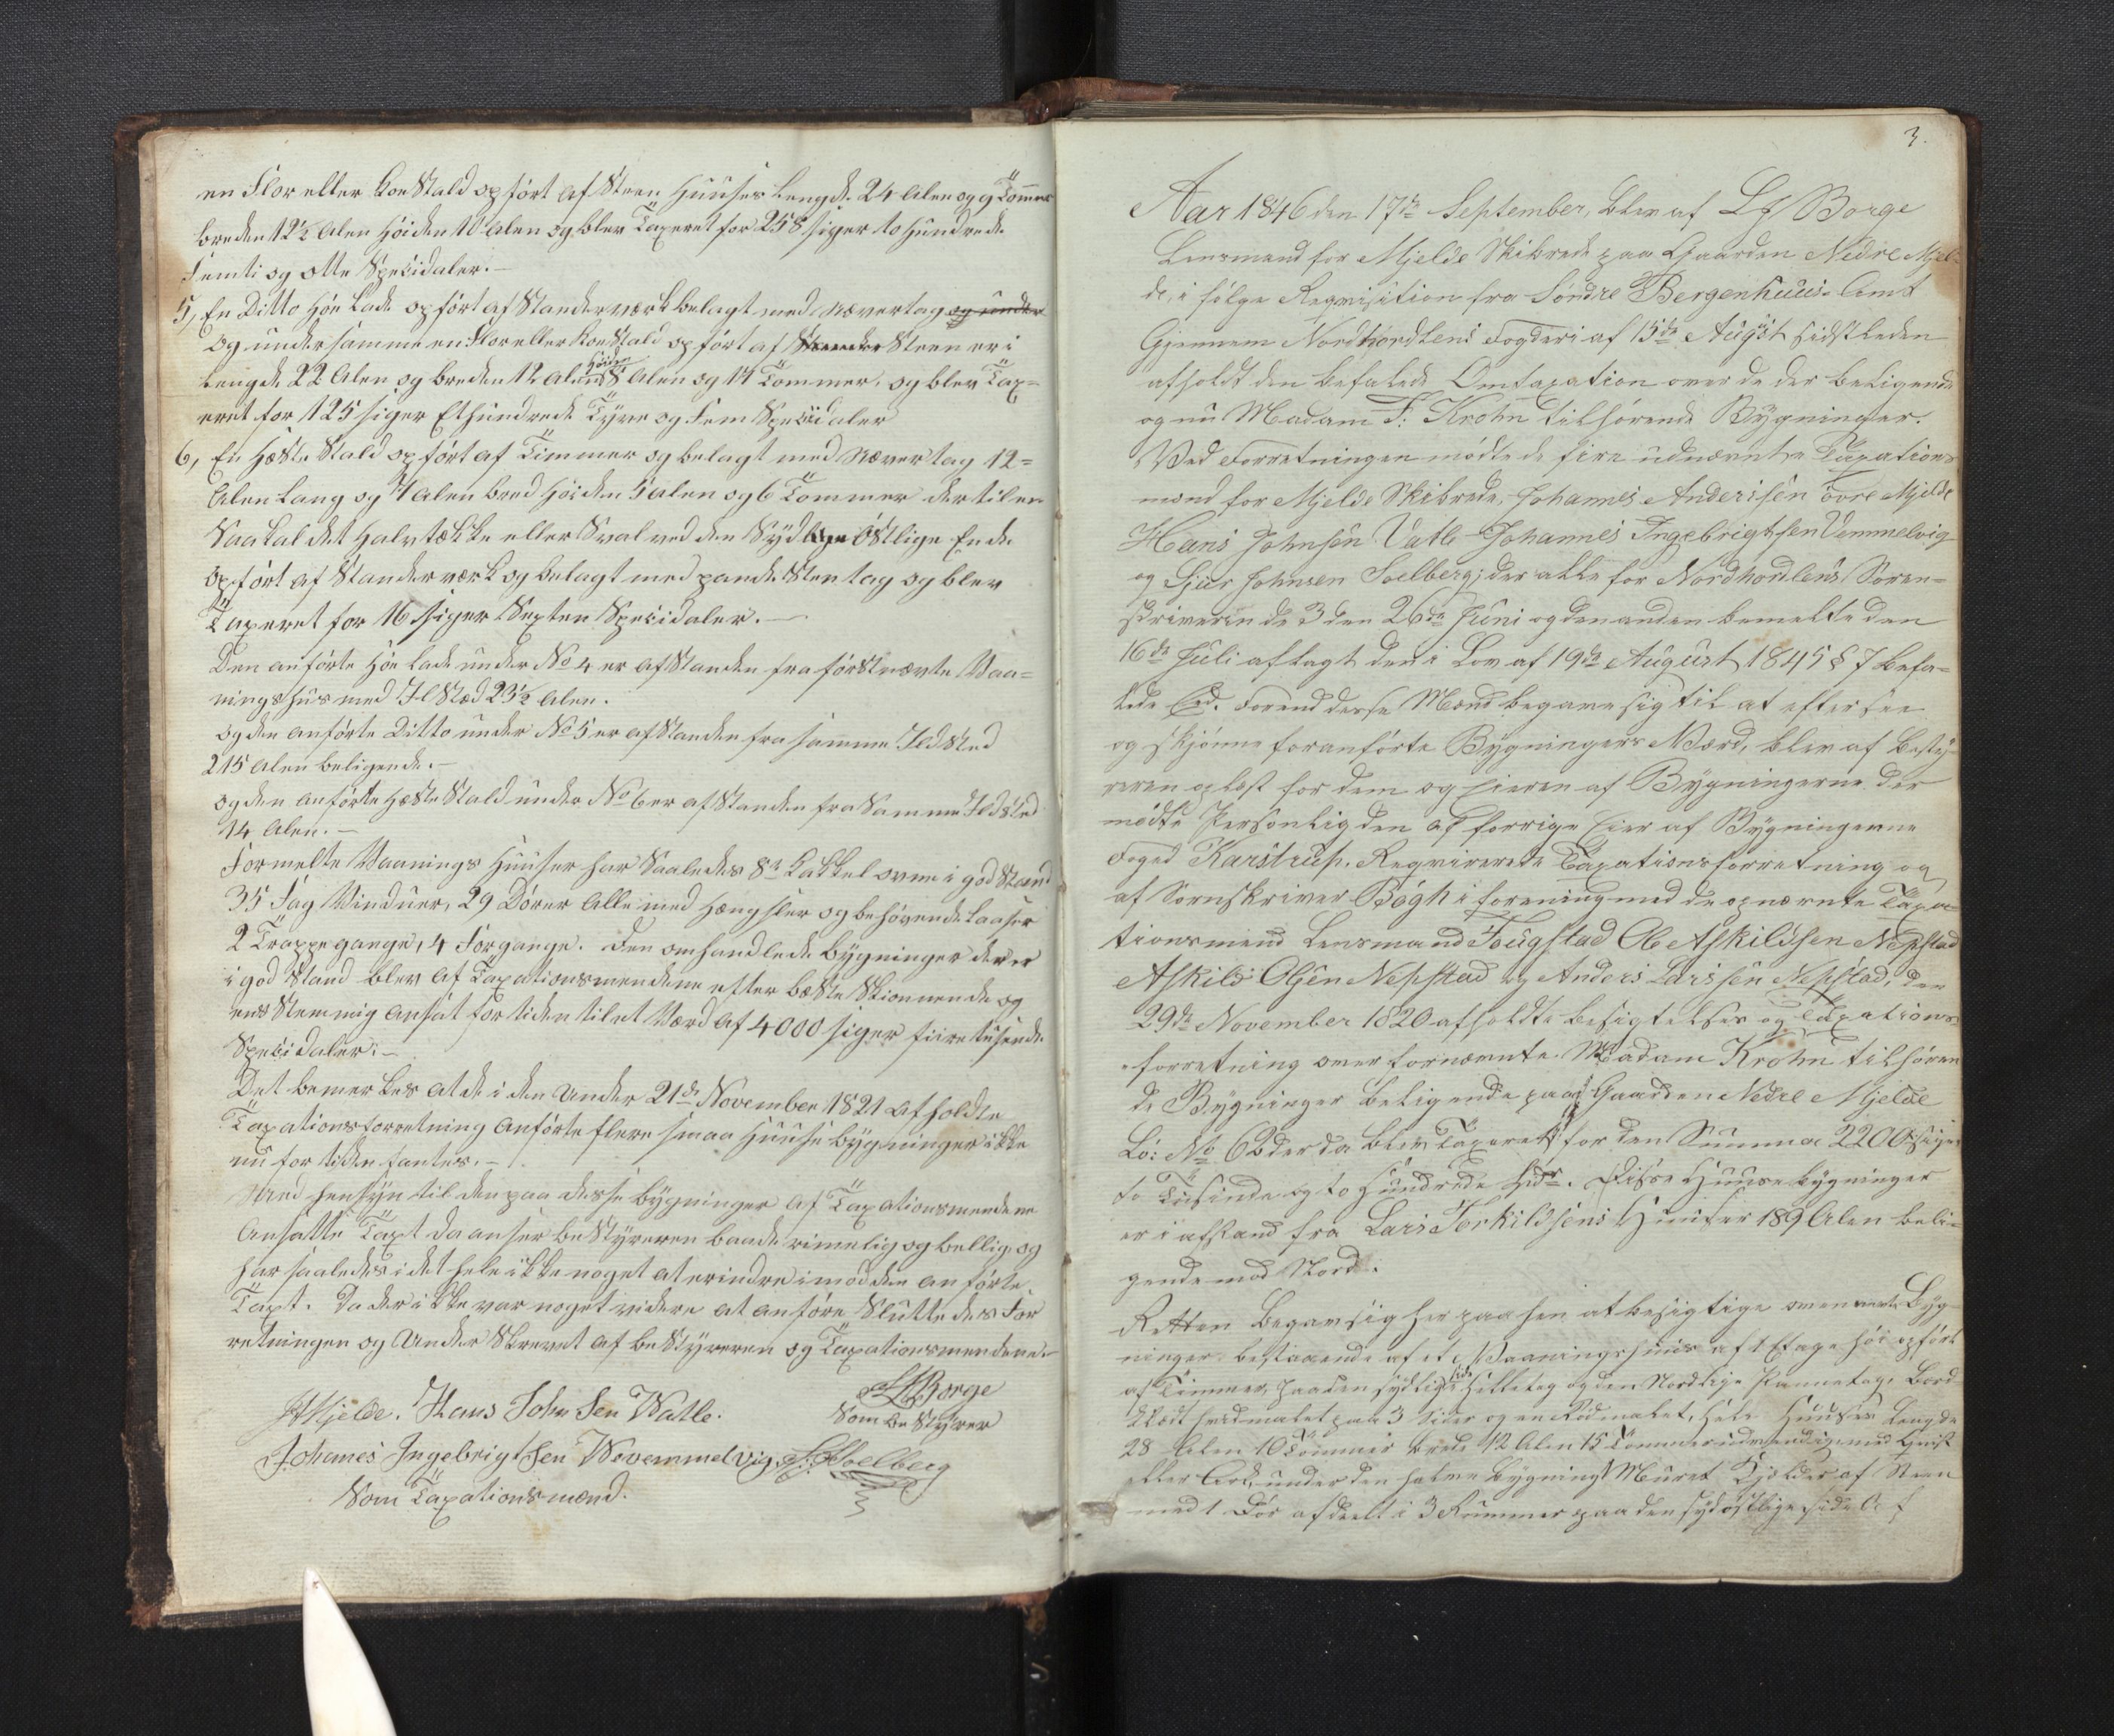 en Flor eller Koe Stald opført af Steen Huuses Lengde 24 Alen og 9 Tommer
breden 12½ Alen Høiden 10 Alen og blev Taxeret for 258 siger to Hundrede
Femti og otte Specidaler.-
5, En Ditto Høe Lade opført af Standerværk belagt med Nævertag og under
og under samme en Flor eller Koe Stald opført af Steen er i
Lengde 22 Alen og breden 12 Alen Høiden 8 Alen og 14 Tommer. og blev Tax=
eret for 125 siger Ethundrede Tyve og Fem Specidaler
6, En Hæste Stald opført af Timmer og belagt med Nævertag 12=
Alen Lang og 7 Alen bred Høiden 5 Alen og 6 Tommer dertil en
Saakaldet Halvtække eller Sval ved den Syd Østlige Ende
opført af Standerværk og belagt med pande Sten tag og blev
Taxeret for 16 siger Sexten Specidaler.-
Den anførte Høe Lade under No 4 er afstanden fra førstnævte Vaa=
ningshus med Ildsted 23½ Alen.
og den anførte Ditto under No 5 er afstanden fra samme Ildsted
215 Alen beligende.-
og den anførte Hæste Stald under No 6 er afstanden fra Samme Ildsted
14 Alen.-
Formelte Vaanings Huuser har Saaledes 8te Kakkelovne i god Stand
35 Fag Vinduer, 29 Dører Alle med Hængsler og behøvende Laaser
2 Trappegange, 4 Forgange. Den omhandlede bygninger der er
i god Stand blev af Taxationsmendene efter bæste Skionnende og
ens Stemmig ansat for tiden til et Værd af 4000 siger fiire tusende
Specidaler.-
Det bemerkes at de i den Under 21de November 1821 afholdte
Taxationsforretning Anførte flere smaa Huuse bygninger ikke
nu for tiden fantes.-
Med hensyn til den paa desse bygninger af Taxationsmendene
Ansatte Taxt da anser bestyreren baade rimelig og bellig og
har saaledes i det hele ikke noget at erindre imod den anførte
Taxt. Da der ikke var noget videre at anføre Sluttedes For
retningen og Under Skrevet af bestyreren og Taxationsmendene.-
LJ Borge
Som bestyrer
JA Mjelde. Hans Johnsen Watle.
Johanes Ingebrigtsen Wovemmelvig. Soelberg
Som Taxationsmænd.
3.
Aar 1846 den 17de September, blev af LJ Borge
Lensmand for Mjelde Skibrede paa Gaarden Nedre Mjel=
de, i følge Reqvisition fra Søndre Bergenhuus Amt
Gjennem Nordhordlens Fogderi af 15de August sidstleden
afholdt den befalede Omtaxation over de der beligende
og nu Madam F: Krohn tilhørende Bygninger.
Ved Forretningen mødte de fire udnævnte Taxations
mænd for Mjelde Skibrede, Johannes Andersen øvre Mjelde
Hans Johnsen Vatle Johannes Ingebrigtsen Vemmelvig
og Gier Johnsen Soelberg; der alle for Nordhordlens Soren=
skriveri de 3 den 26de Juni og den anden bemelte den
16de Juli aflagt den i Lov af 19de August 1845 § 7 befa=
lede Eed. Forend desse Mænd begave sig til at eftersee
og skjønne foranførte Bygningers Værd, blev af besty=
reren oplæst for dem og Eieren af Bygningerne der
mødte Personlig den af forrige Eier af Bygningerne
Foged Karstrup. Reqvirerede Taxationsforretning og
af Sorenskriver Bøgh i forening med de opnævnte Taxa=
tionsmend Lensmand Fougstad Ole Askildsen Nepstad
Askild Olsen Nepstad og Anders Larssen Nepstad, den
29de November 1820 afholdte besigtelses og Taxations
forretning over fornævnte Madam Krohn tilhøren
de Bygninger beligende paa Gaarden Nedre Mjelde
Lø: No 62 der da blev Taxeret for den Summa 2200 siger
to Tusinde og to Hundrede Spdr. Disse Huusebygninger
er i afstand fra Lars Torkildsens Huuser 189 Alen beli=
gende mod Nord.
Retten begav sig her paa hen at besigtige ovennævnte byg=
ninger bestaaende af et Vaaningshuus af 1 Etage høi opført
af Timmer, paa den sydlige Side Helletag og den Nordlige Pannetag. bord
klædt hvidmalet paa 3 Sider og en Rødmalet, hele Huuses Lengde
28 Alen 10 Tommer brede 12 Alen 15 Tommer udvendig med Qvist
eller Ark, under den halve bygning Muret Kjelder af Steen
med 1 Dør afdeelt i 3 Rummer paa den sydøstlige side af